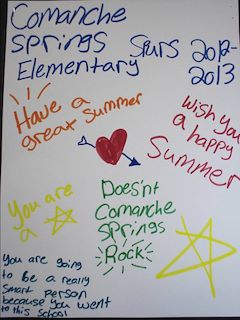 Comanche
Springs Spurs 2012-
Elementary 2013
Have a
great Summer
Wish you
a happy
Summer
You are
a
Does'nt
Comanche
Springs
Rock
You are going
to be a really
smart person
because you went
to this school